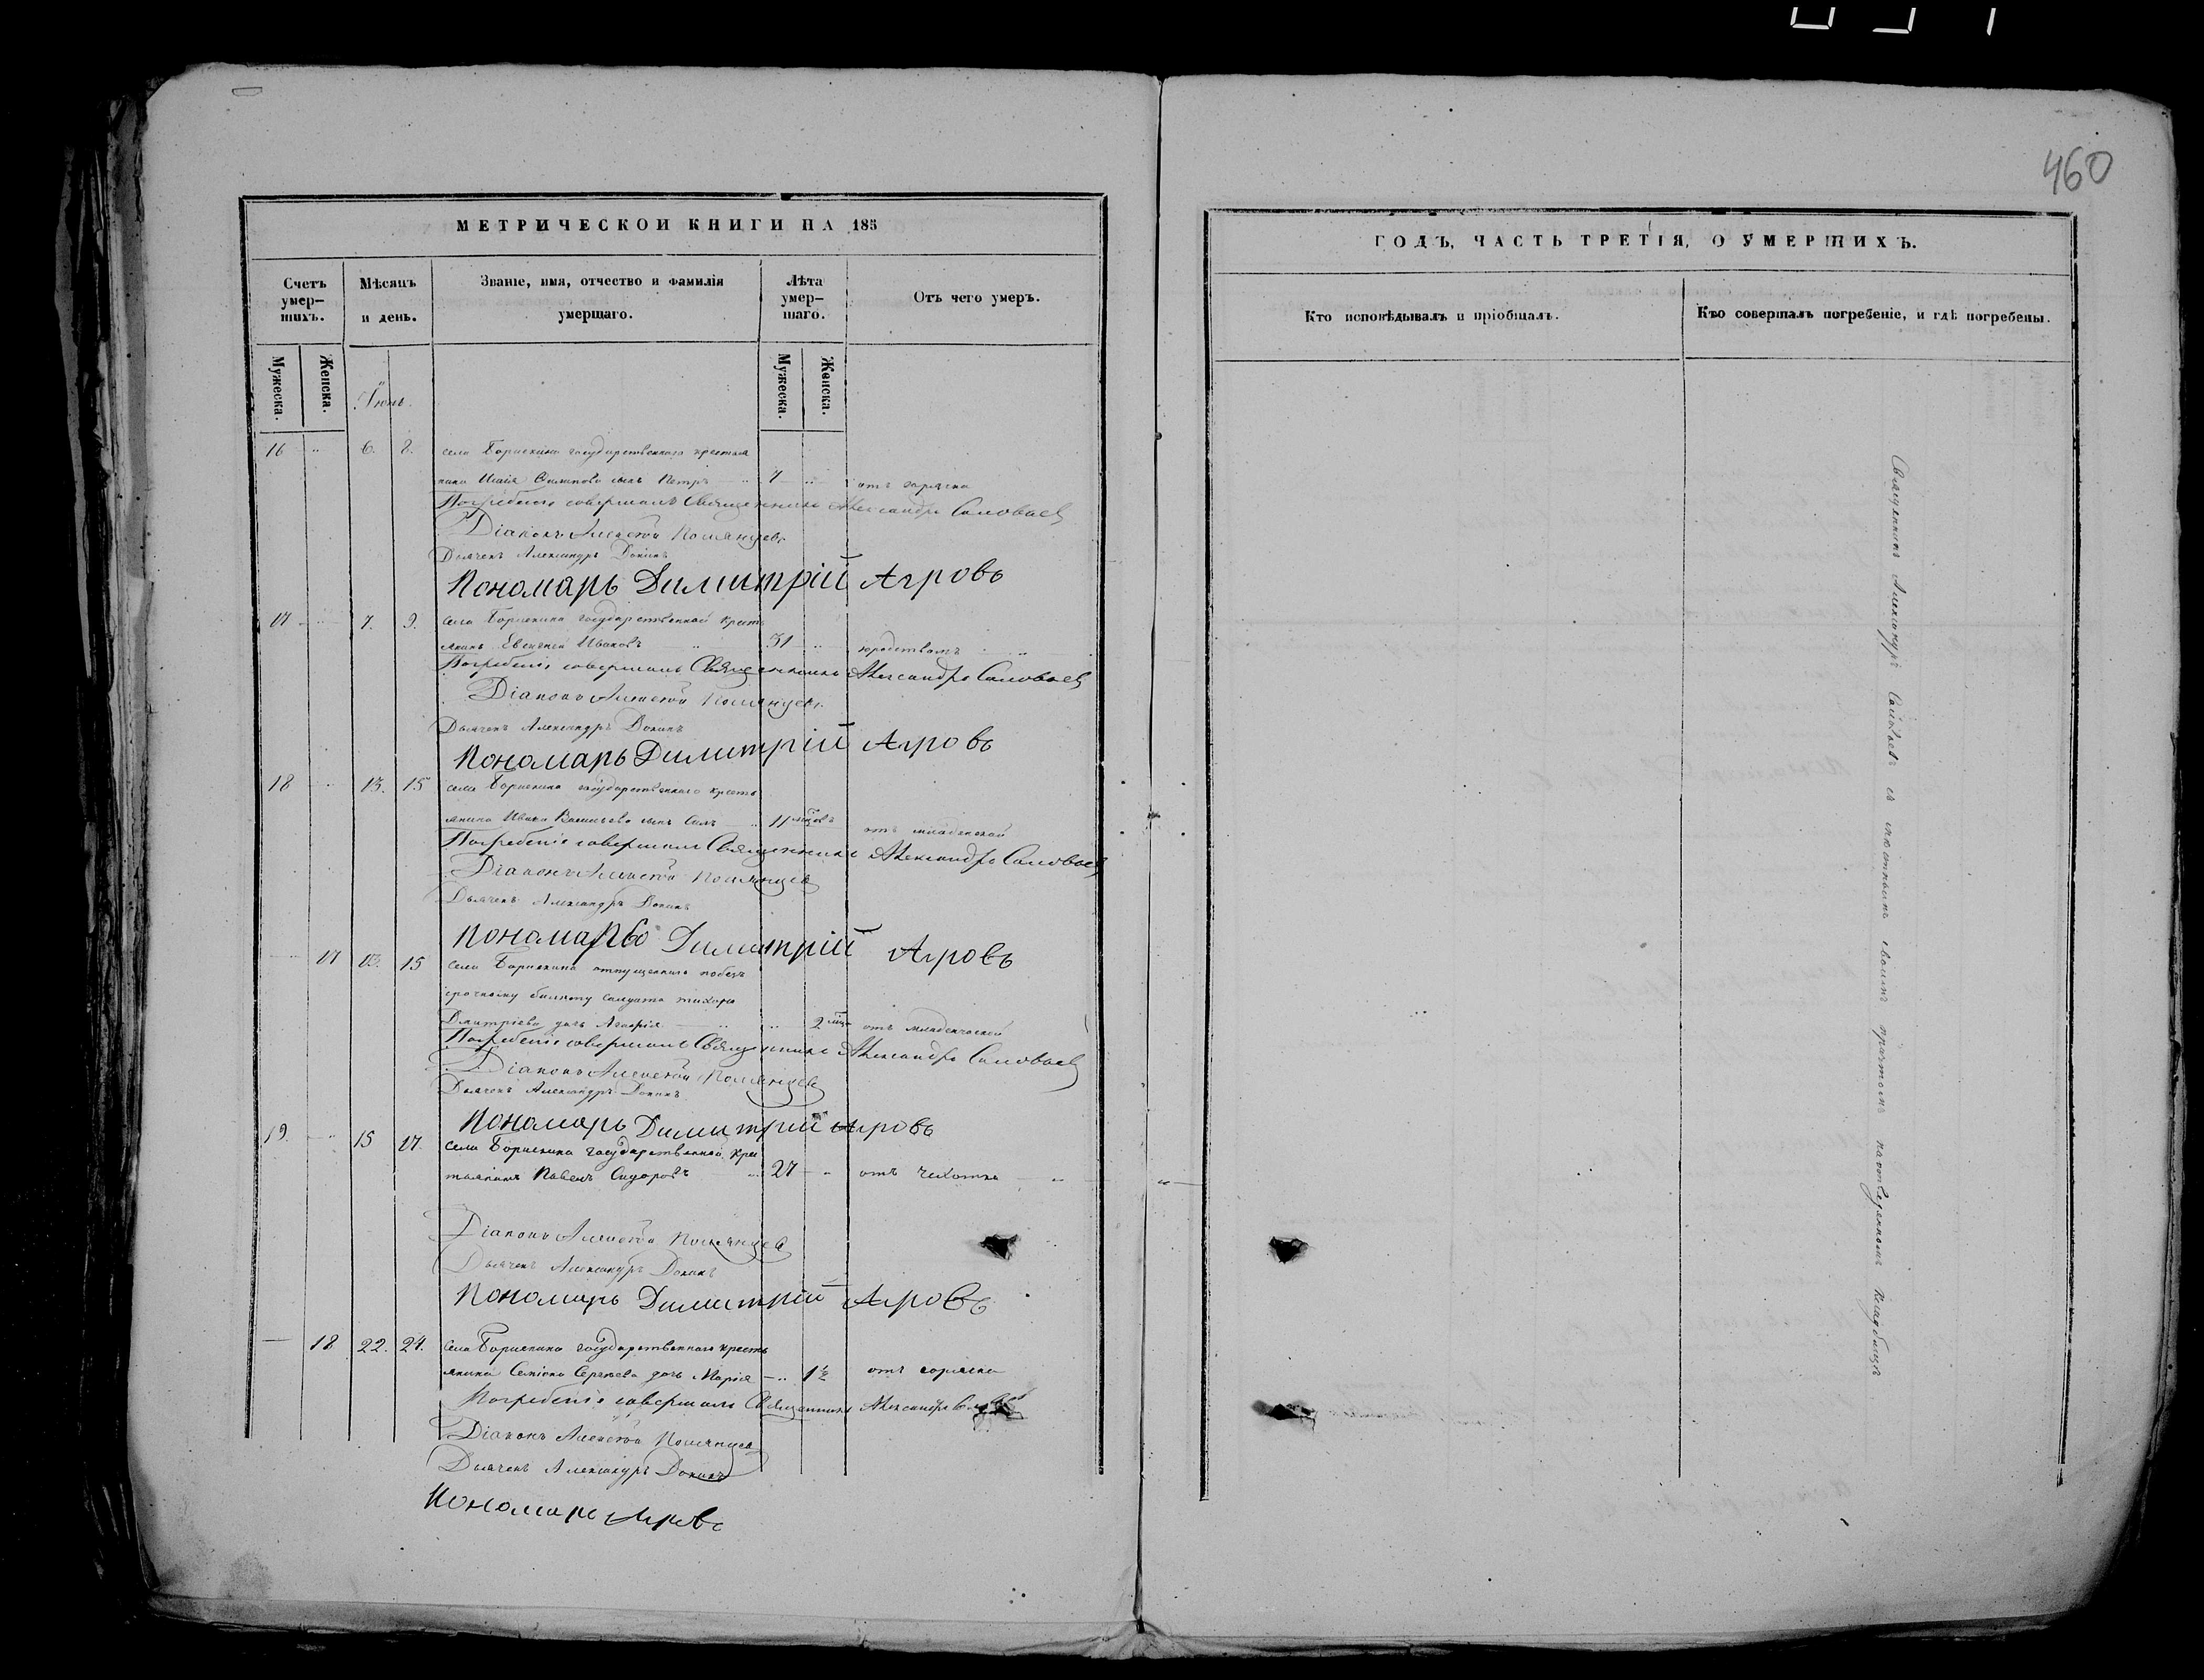 460
МЕТРИЧЕСКОЙ КНИГИ НА 185
Счетъ умер-шихъ.
Мѣсяцъ и день.
Званіе, имя, отчество и фамилія умершаго.
Лѣта умер-шаго.
Отъ чего умеръ.
Мужеска.
Женска.
Мужеска.
Женска.
Іюнь.
16 6. 8. села Борискина государственнаго крестья
нина сынъ Петръ 7 отъ горячки
Погребеніе совершалъ Священникъ Александръ Соловьевъ
Діаконъ Алексѣй
Дьячекъ Александръ
Пономарь Димитрій Агровъ
17 7. 9. села Борискина государственной кресть
янинъ Евсигней Ивановъ 31
Погребеніе совершалъ Священникъ Александръ Соловьевъ
Діаконъ Алексѣй
Дьячекъ Александръ
Пономарь Димитрій Агровъ
18 13. 15 села Борискина государственнаго кресть
янина Ивана Васильева сынъ 11 мѣсяцовъ отъ младенской
Погребеніе совершалъ Священникъ Александръ Соловьевъ
Діаконъ Алексѣй
Дьячекъ Александръ
Пономарь Димитрій Агровъ
17 13. 15 села Борискина отпущеннаго побезъ
срочному билету солдата Тихона
Дмитріева дочь 2 мѣсяца отъ младенческой
Погребеніе совершалъ Священникъ Александръ Соловьевъ
Діаконъ Алексѣй
Дьячекъ Александръ
Пономарь Димитрій Агровъ
19. 15 17. села Борискина государственной крес
тьянинъ Павелъ Сидоровъ 27 отъ чихотки
Діаконъ Алексѣй
Дьячекъ Александръ
Пономарь Димитрій Агровъ
18 22. 24. села Борискина государственнаго кресть
янина Семіона Сергѣева дочь Марія 1½ отъ горячки
Погребеніе совершалъ Священникъ Александръ
Діаконъ Алексѣй
Дьячекъ Александръ
Пономарь Агровъ
ГОДЪ, ЧАСТЬ ТРЕТІЯ, О УМЕРШИХЪ.
Кто исповѣдывалъ и пріобщалъ.
Кто совершалъ погребеніе, и гдѣ погребены.
Священникъ Александръ Соловьевъ съ мѣстнымъ своимъ причтомъ на отведенномъ кладбищѣ